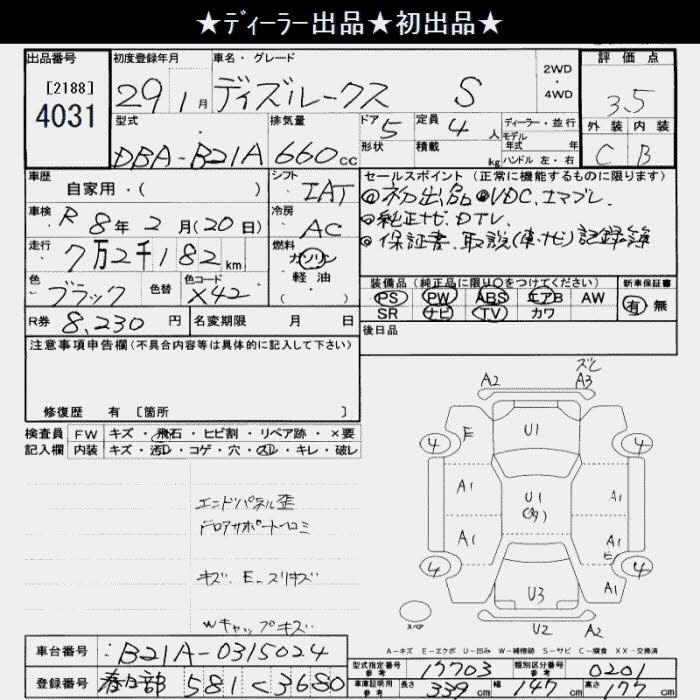 ★ディーラー出品★初出品★
出品番号
[2188]
4031
初度登録年月
29年 1月
車名・グレード
ディズルークス S
2WD
・
4WD
評価点
3.5
外装 内装
C B
型式
DBA-B21A
排気量
660cc
ドア 5
形状
定員 4人
積載 kg
ディーラー・並行
モデル
年式 年
ハンドル 左・右
車歴
自家用・( )
シフト
IAT
セールスポイント(正常に機能するものに限ります)
◎初出品 ◎VDC.エマブレ.
◎純正ナビ.DTV.
◎保証書.取説(車・ナビ)記録簿
車検 R 8年 2月(20日)
冷房
AC
走行
7万2千182km
燃料
ガソリン
・
軽油
・
( )
色
ブラック
色替
色コード
X42
装備品(純正品に限り〇をつけてください)
PS PW ABS エアB AW
SR ナビ TV カワ
新車保証書
有・無
R券 8,230円
名変期限 月 日
後日品
注意事項申告欄(不具合内容等は具体的に記入して下さい)
修復歴 有 [箇所 ]
検査員
記入欄
FW キズ・飛石・ヒビ割・リペア跡・×要
内装 キズ・汚れ・コゲ・穴・スレ・キレ・破レ
エンドパネル歪
ドロアサポートヘコミ
キズ、E-スリキズ
Wキャップキズ
ズレ
A2 A3
E U1
4 4
A1 U1 A1
A1 A1
E
4 4
U3 A1
U2 A2
スペア
A-キズ E-エクボ U-凹み W-補修跡 S-サビ C-腐食 XX-交換済
車台番号 : B21A-0315024
登録番号 春日部 581 く 3680
型式指定番号
参考
17703
類別区分番号
参考
0201
車庫証明用
参考
長さ 339cm 幅 147cm 高さ 177cm